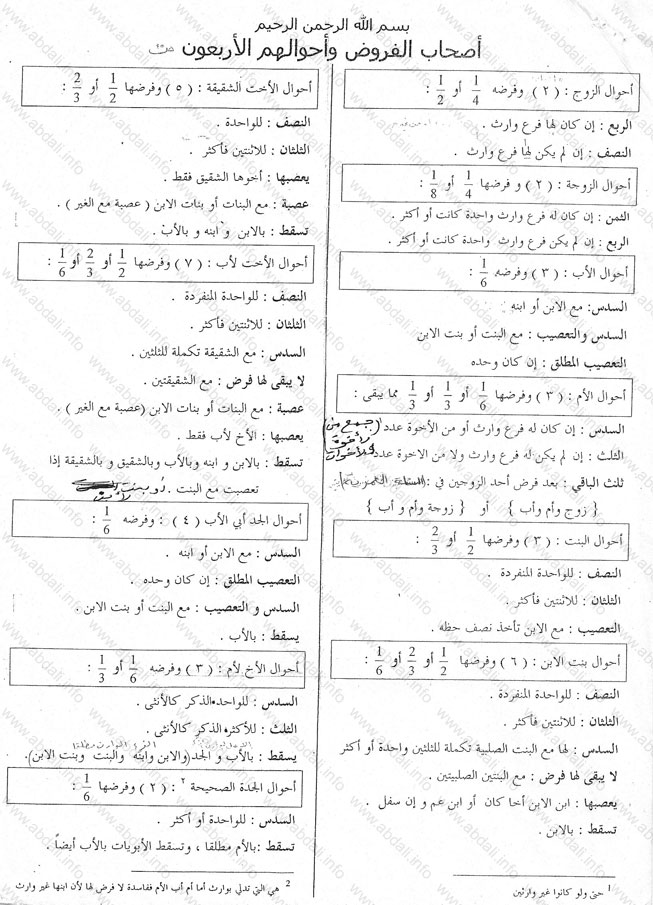 بسم الله الرحمن الرحيم
أصحاب الفروض وأحوالهم الأربعون
أحوال الزوج : ( ٢ ) وفرضه 1/4 أو 1/2 :
الربع : إن كان لها فرع وارث .
النصف : إن لم يكن لها فرع وارث .
أحوال الزوجة : ( ٢ ) و فرضها 1/4 أو 1/8 :
الثمن : إن كان له فرع وارث واحدة كانت أو أكثر .
الربع : إن لم يكن فرع وارث واحدة كانت أو أكثر .
أحوال الأب : ( ٣ ) وفرضه 1/6 :
السدس : مع الابن أو ابنه
السدس والتعصيب : مع البنت أو بنت الابن
التعصيب المطلق : إن كان وحده
أحوال الأم : ( ٣ ) وفرضها 1/6 أو 1/3 أو 1/3 مما يبقى :
السدس : إن كان له فرع وارث أو من الأخوة عدد ¹ (جمع من
الثلث : إن لم يكن له فرع وارث ولا من الاخوة عدد
ثلث الباقي : بعد فرض أحد الزوجين في :
{ زوج وأم وأب } أو { زوجة وأم و أب }
أحوال البنت : ( ٣ ) وفرضها 1/2 أو 2/3 :
النصف : للواحدة المنفردة .
الثلثان : للاثنتين فأكثر .
التعصيب : مع الابن تأخذ نصف حظه .
أحوال بنت الابن : ( ٦ ) وفرضها 1/2 أو 2/3 أو 1/6 :
النصف : للواحدة المنفردة .
الثلثان : للاثنتين فأكثر .
السدس : لها مع البنت الصلبية تكملة للثلثين واحدة أو أكثر
لا يبقى لها فرض : مع البنتين الصلبيتين .
يعصبها : ابن الابن أخا كان أو ابن عم و إن سفل .
تسقط : بالابن .
¹ حتى ولو كانوا غير وارثين
أحوال الأخت الشقيقة : ( ٥ ) وفرضها 1/2 أو 2/3 :
النصف : للواحدة .
الثلثان : للاثنتين فأكثر .
يعصبها : أخوها الشقيق فقط .
عصبة : مع البنات أو بنات الابن ( عصبة مع الغير ) .
تسقط : بالابن و ابنه و بالأب .
أحوال الأخت لأب : ( ٧ ) وفرضها 1/2 أو 2/3 أو 1/6 :
النصف : للواحدة المنفردة .
الثلثان : للاثنتين فأكثر .
السدس : مع الشقيقة تكملة للثلثين .
لا يبقى لها فرض : مع الشقيقتين .
عصبة : مع البنات أو بنات الابن (عصبة مع الغير ) .
يعصبها : الأخ لأب فقط .
تسقط : بالابن و ابنه وبالأب وبالشقيق و بالشقيقة إذا
تعصبت مع البنت .
أحوال الجد أبي الأب ( ٤ ) : وفرضه 1/6 :
السدس : مع الابن أو ابنه .
التعصيب المطلق : إن كان وحده .
السدس و التعصيب : مع البنت أو بنت الابن .
يسقط : بالأب .
أحوال الأخ لأم : ( ٣ ) وفرضه 1/6 أو 1/3 :
السدس : للواحد الذكر كالأنثى .
الثلث : للأكثر الذكر كالأنثى .
يسقط : بالأب و الجد (والابن وابنه والبنت وبنت الابن).
أحوال الجدة الصحيحة ² : ( ٢ ) وفرضها 1/6 :
السدس : للواحدة أو أكثر .
تسقط : بالأم مطلقا ، وتسقط الأبويات بالأب أيضاً .
² هي التي تدلي بوارث أما أم أب الأم ففاسدة لا فرض لها لأن ابنها غير وارث
www.abdali.info